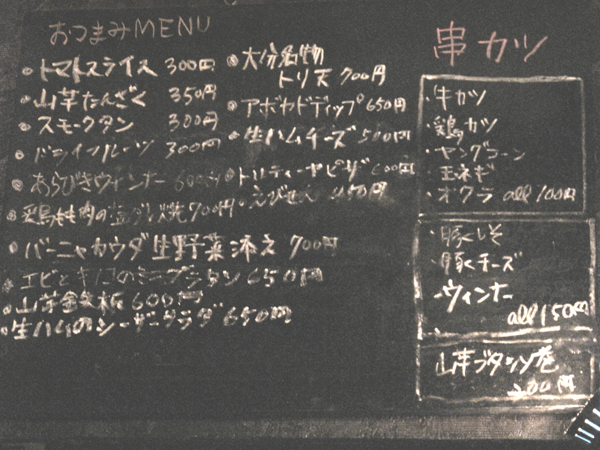 おつまみMENU
・トマトスライス 300円
・山芋たんざく 350円
・スモークタン 300円
・ドライフルーツ 300円
・あらびきウィンナー 600円
・鶏もも肉の塩ダレ焼 700円
・バーニャカウダ生野菜添え 700円
・エビときのこのミニグラタン 650円
・山芋鉄板 600円
・生ハムのシーザーサラダ 650円
・大分名物
トリ天 700円
・アボカドディップ 650円
・生ハムチーズ 500円
・トルティーヤピザ 600円
・えびせん 450円
串カツ
・牛カツ
・鶏カツ
・ヤングコーン
・玉ネギ
・オクラ all 100円
・豚しそ
・豚チーズ
・ウィンナー
all 150円
山芋ブタシソ巻
200円